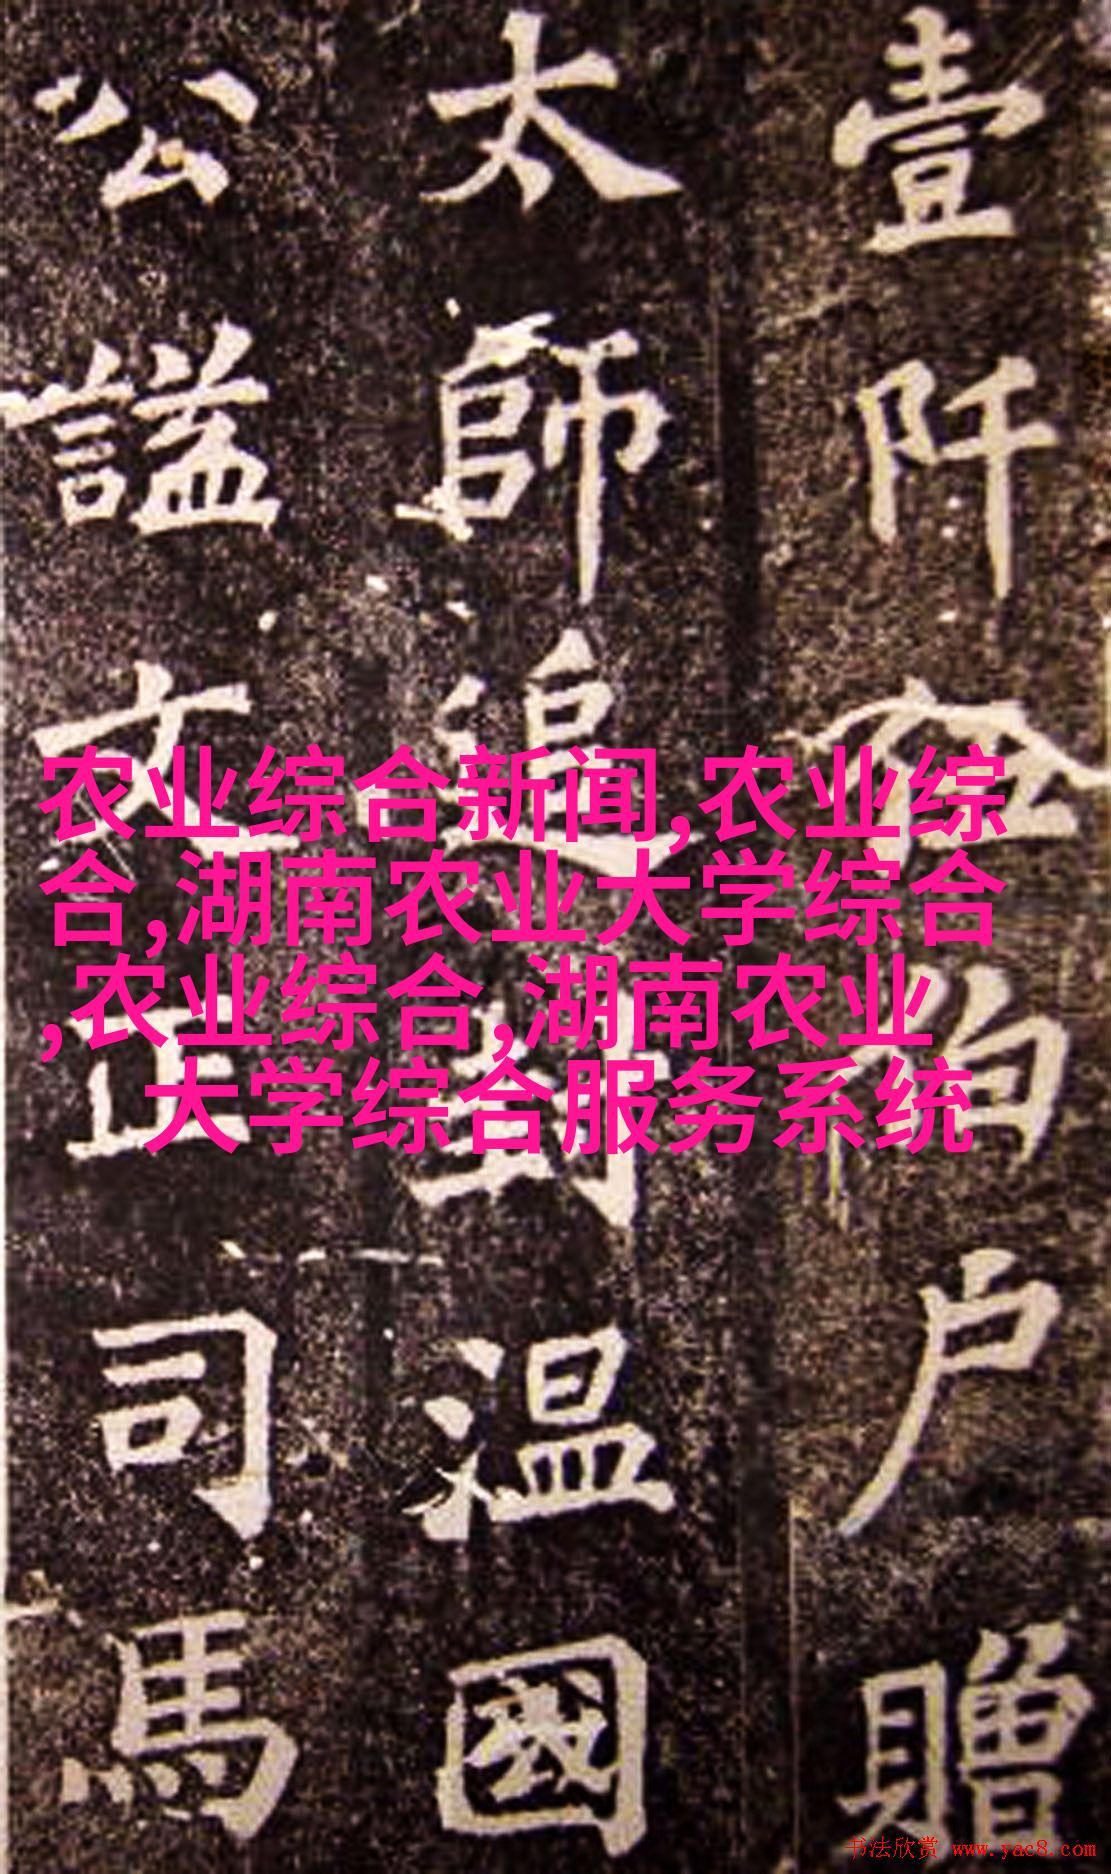 壹阡伯户贈
太師追封温國
公謚文正司馬
农业综合新闻,农业综
合,湖南农业大学综合
,农业综合,湖南农业
大学综合服务系统
书法欣赏 www.yac8.com